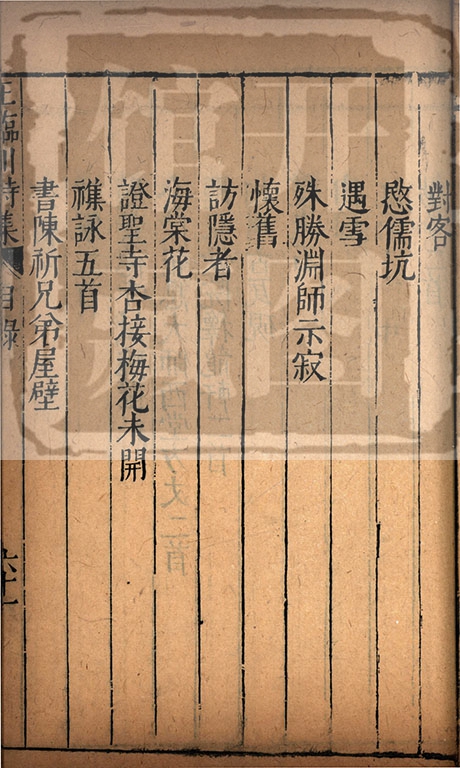 對客
愍儒坑
遇雪
殊勝淵師示寂
懷舊
訪隱者
海棠花
證聖寺杏接梅花未開
襍詠五首
書陳祈兄弟屋壁
王臨川詩集 目錄
六十一